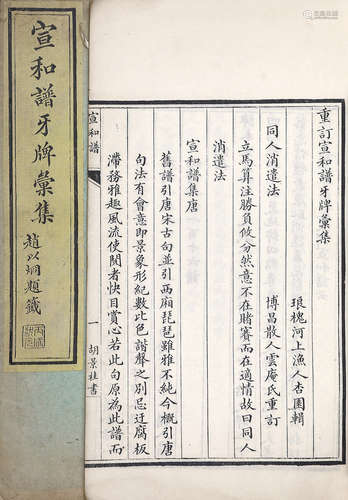 重訂宣和譜牙牌彙集
琅槐河上漁人杏園輯
博昌散人雲庵氏重訂
同人消遣法
立馬算注勝負攸分然意不在賭賽而在適情故曰同人
消遣法
宣和譜集唐
舊譜引唐宋古句並引西廂琵琶雖雅不純今概引唐
句法有會意即景象形紀數比色諧聲之別忌迂腐板
滯務雅趣風流使閱者快目賞心若此句原為此譜而
宣和譜
一
胡景桂書
宣和譜牙牌彙集
趙以炯題籤